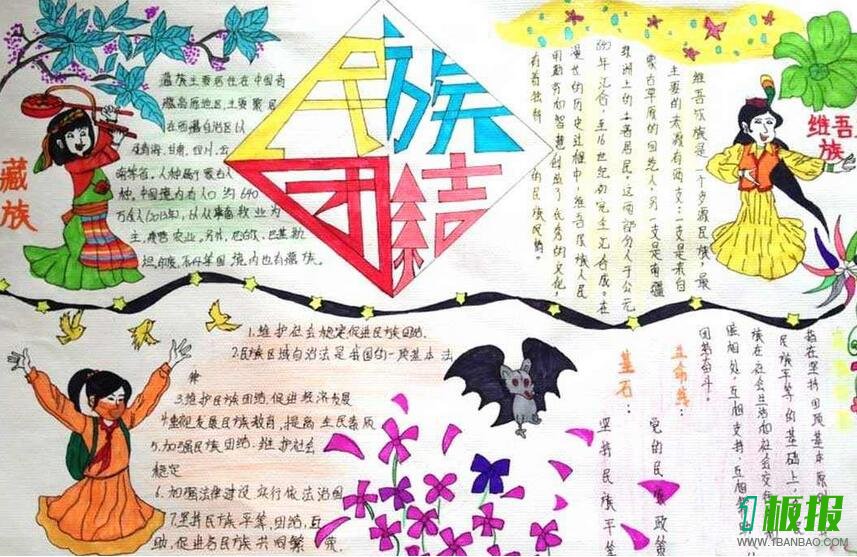 民族
团结
藏族
藏族主要居住在中国青
藏高原地区,主要聚居
在西藏自治区以
及青海、甘肃、四川、云
南等省。人种属于蒙古人
种。中国境内有人口约640
万余人(2013年),以从事畜牧业为
主,兼营农业。另外,尼泊尔、巴基斯
坦、印度、不丹等国境内也有藏族。
维吾
族
维吾尔族是一个跨源民族,最
主要的来源有两支:一支是来自
蒙古草原的回纥人,另一支是南疆
绿洲上的土著居民。这两部分人于公元
840年汇合,至16世纪初完全汇合成。在
漫长的历史过程中,维吾尔族人民
用勤劳和智慧创造了优秀的文化,
有着独特的民族风情。
1.维护社会稳定促进民族团结.
2.民族区域自治法是我国的一项基本法
律
3.维护民族团结,促进经济发展
4.重视发展民族教育,提高全民素质
5.加强民族团结,维护社会
稳定
6.加强法律建设,实行依法治国
7.坚持民族平等,团结,互
助,促进各民族共同繁荣
指在坚持四项基本原
民族平等的基础上,
族在社会生活和社会交
谐相处,互相支持,互相
团结奋斗。
生命线:
党的民族政策
基石:
坚持民族平等
1板报
WWW.1BANBAO.COM